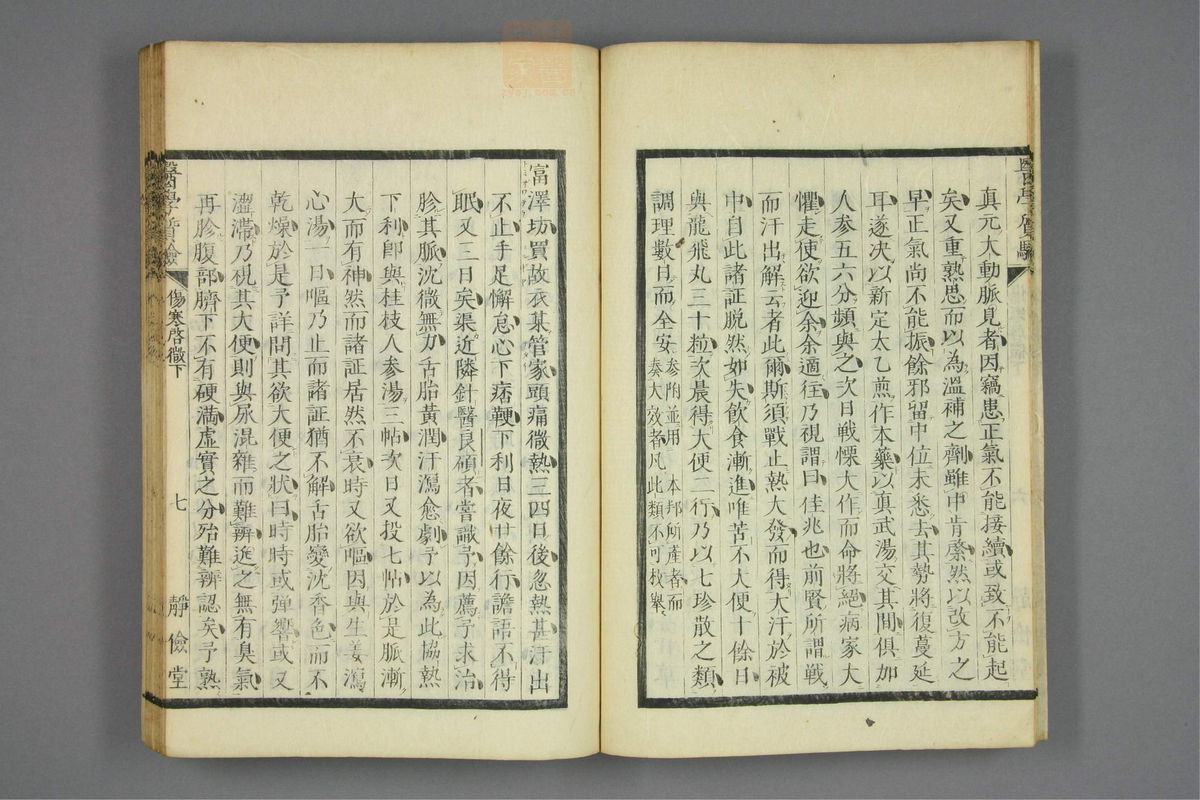 真元大動脈見者因竊患正氣不能接續或致不能起
矣又重熟思而以為溫補之劑雖中肯綮然以改方之
早正氣尚不能振餘邪留中位未悉去其勢將復蔓延
耳遂決以新定太乙煎作本藥以真武湯交其間俱加
人參五六分頻與之次日戰慄大作而命將絕病家大
懼走使欲迎余余適往乃視謂曰佳兆也前賢所謂戰
而汗出解云者此爾斯須戰止熱大發而得大汗於被
中自此諸証脫然如失飲食漸進唯苦不大便十餘日
與龍飛丸三十粒次晨得大便二行乃以七珍散之類
調理數日而全安參附並用本邦所產者而
奏大效者凡此類不可枚舉
醫學實驗
富澤坊買故衣某管家頭痛微熱三四日後忽熱甚汗出
不止手足懈怠心下痞鞕下利日夜廿餘行譫語不得
眠又三日矣渠近隣針醫良碩者嘗識予因薦予求治
胗其脈沈微無力舌胎黃潤汗瀉愈劇予以為此協熱
下利卽與桂枝人參湯三帖次日又投七帖於是脈漸
大而有神然而諸証居然不衰時又欲嘔因與生姜瀉
心湯一日嘔乃止而諸証猶不解舌胎變沈香色而不
乾燥於是予詳問其欲大便之狀曰時時或弾響或又
澀滯乃視其大便則與尿混雜而難辨近之無有臭氣
再胗腹部臍下不有硬満虛實之分殆難辨認矣予熟
醫學實驗
傷寒啓微下
七
靜儉堂